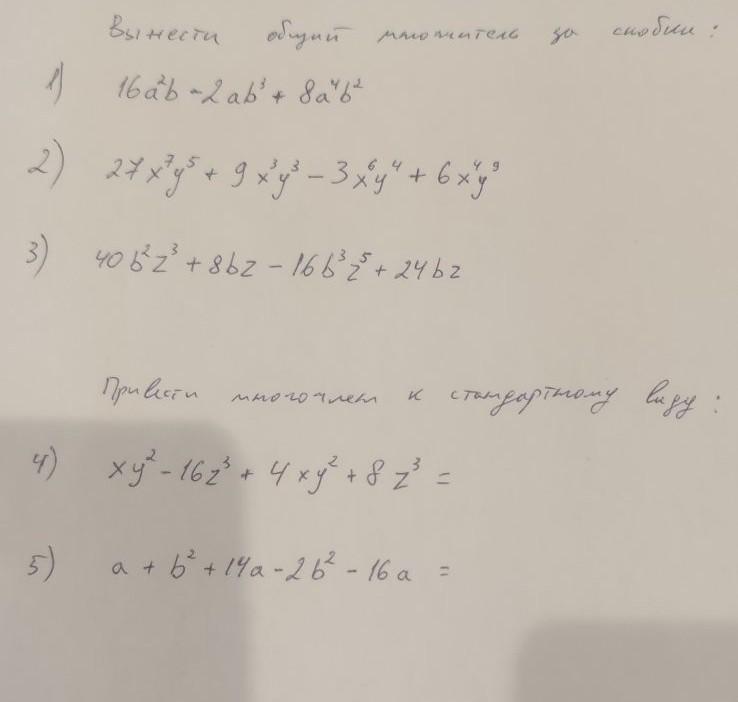 Вынести общий множитель за скобки:
1) 16a²b - 2ab³ + 8a⁴b²
2) 27x⁷y⁵ + 9x³y³ - 3x⁶y⁴ + 6x⁴y⁹
3) 40b²z³ + 8bz - 16b³z⁵ + 24bz
Привести многочлен к стандартному виду:
4) xy² - 16z³ + 4xy² + 8z³ =
5) a + b² + 14a - 2b² - 16a =